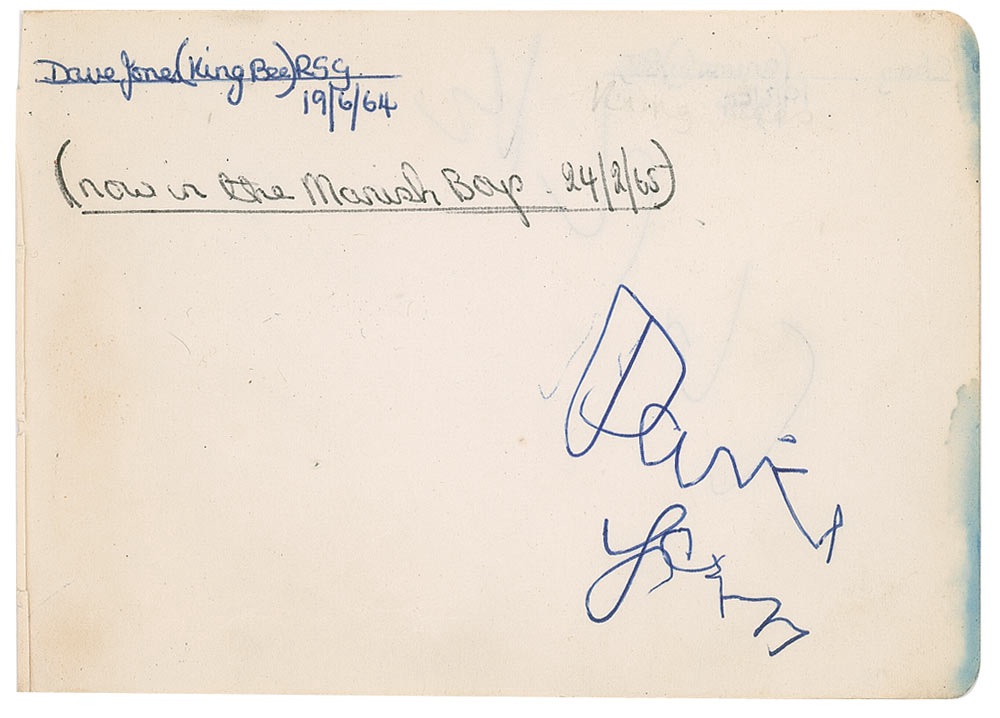 Dave Jones (King Bee) RSG
19/6/64
(now in the Manish Boys. 24/2/65)
David
Jones